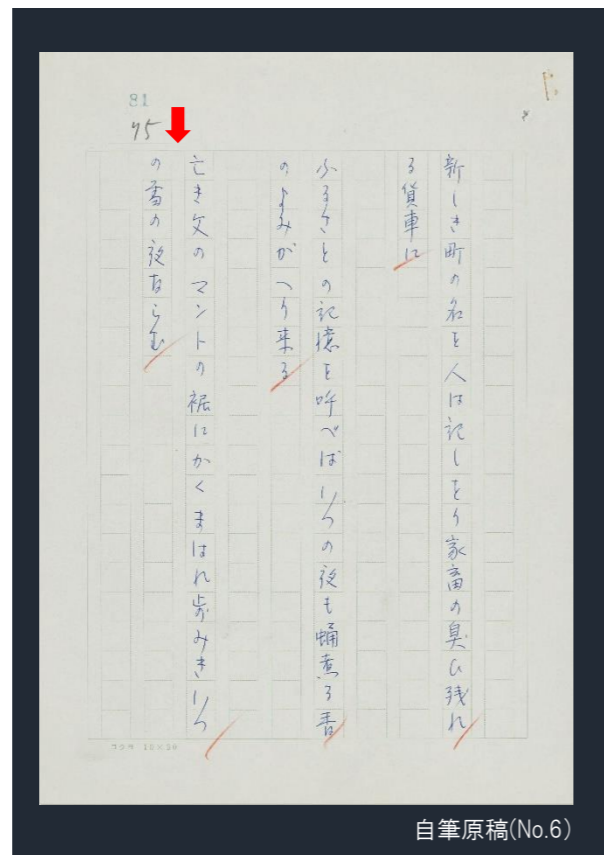 81
75
新しき町の名を人は記しをり家畜の臭ひ残れ
る貨車に
ふるさとの記憶を呼べばいつの夜も蛹煮る香
のよみがへり来る
亡き父のマントの裾にかくまはれ歩みきいつ
の雪の夜ならむ
コクヨ 10×20
自筆原稿(No.6)